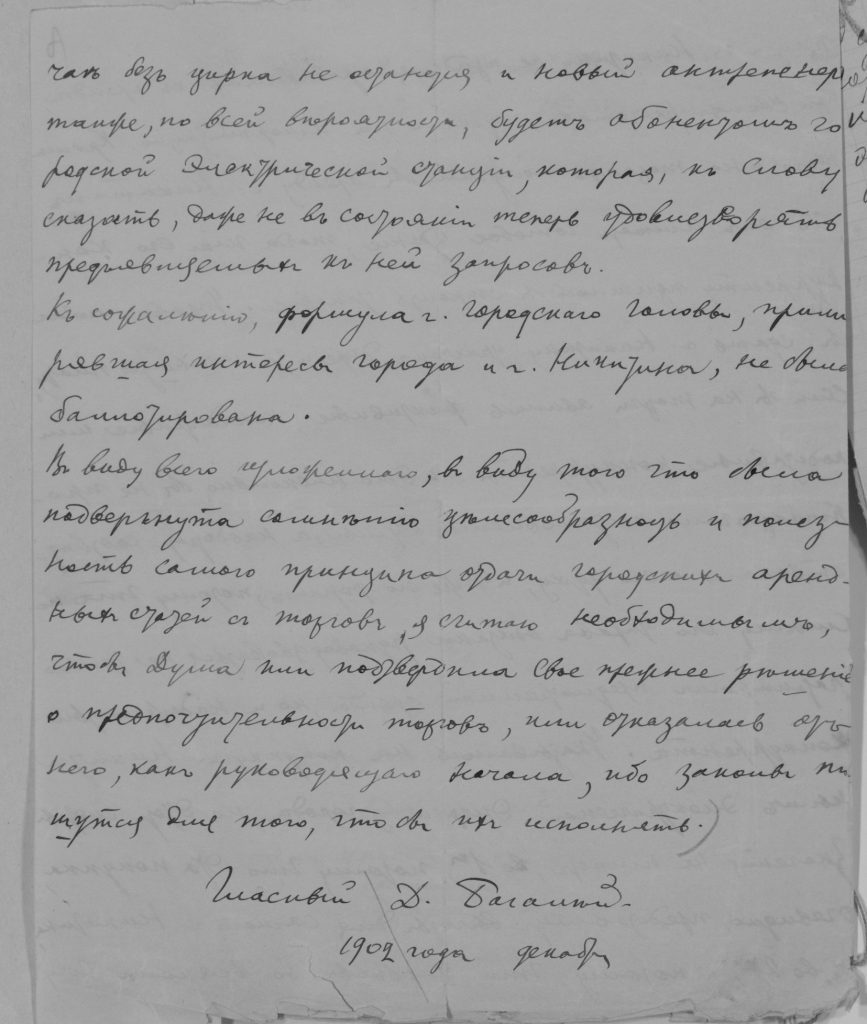 чатъ безъ цирка не останется и новый антрепенер
также, по всей вѣроятности, будетъ абонентомъ го
родской Электрической станціи, которая, къ слову
сказать, даже не въ состояніи теперь удовлетворять
предъявляемыхъ къ ней запросовъ.
Къ сожалѣнію, формула г. городскаго Головы, прими
рявшая интересы города и г. Никитина, не была
баллотирована.
Въ виду всего изложеннаго, въ виду того что была
подвергнута сомнѣнію цѣлесообразность и полез-
ность самого принципа отдачи городскихъ аренд-
ныхъ статей съ торговъ, я считаю необходимымъ,
чтобы Дума или подтвердила свое прежнее рѣшеніе
о предпочтительности торговъ, или отказалась отъ
него, какъ руководящаго начала, ибо законы пи
шутся для того, чтобы ихъ исполнять.)
Гласный Д. Багалѣй.
1902 года декабр